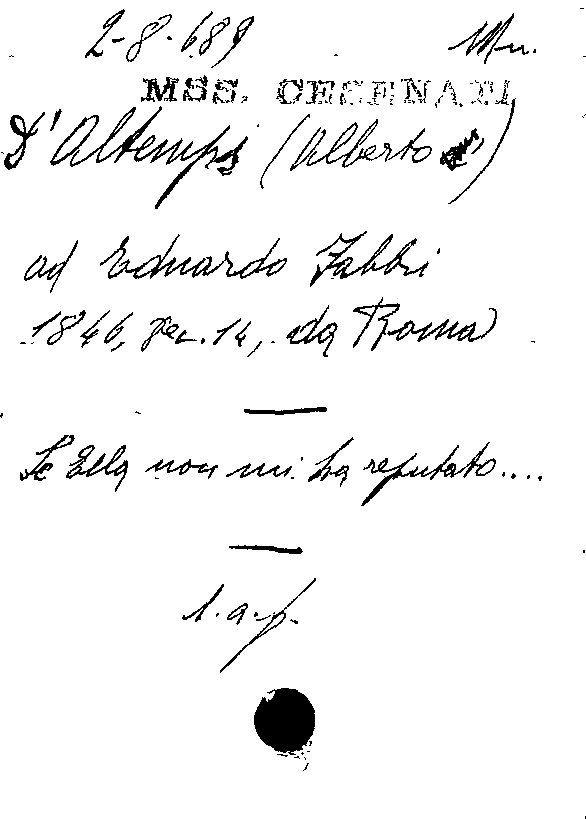 2-8-689 Mn.
MSS. CESENATI
D'Altemps (Alberto )
ad Eduardo Fabbri
1846, Dec. 14, da Roma
Se Ella non mi ha reputato....
l.a.f.